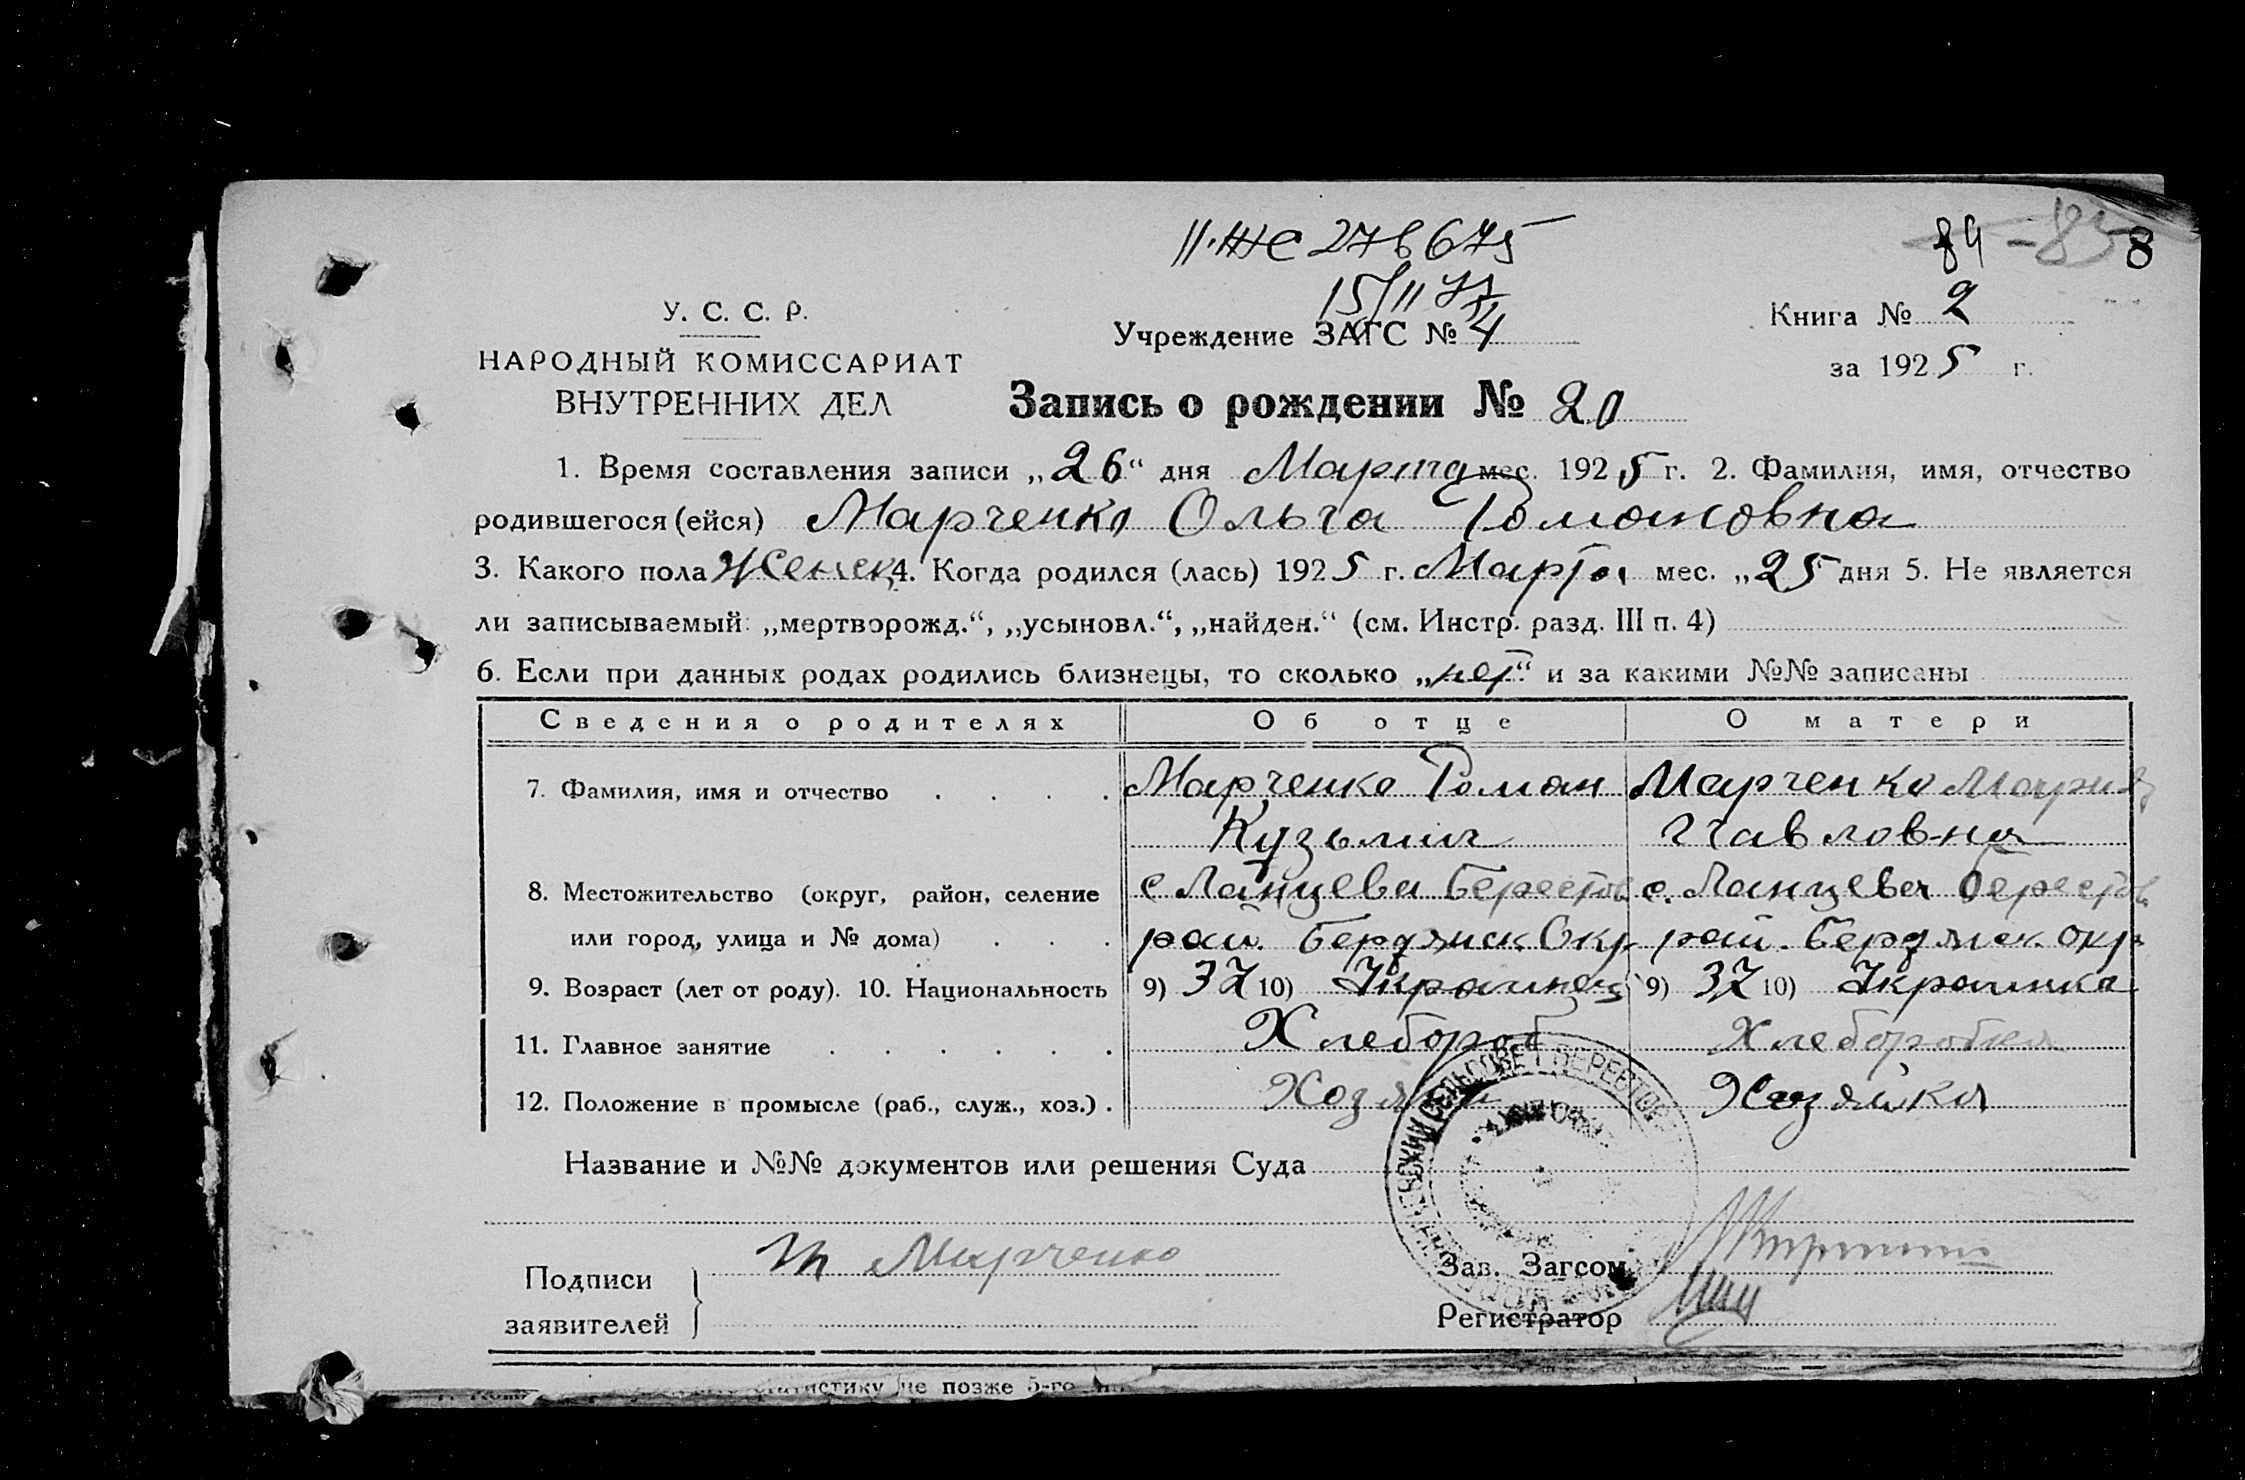 II-ЖС 278675
84 - 83 8
15/II 77
У. С. С. Р.
Учреждение ЗАГС № 4
Книга № 2
НАРОДНЫЙ КОМИССАРИАТ
за 1925 г.
ВНУТРЕННИХ ДЕЛ
Запись о рождении № 20
1. Время составления записи „26“ дня Марта мес. 1925 г. 2. Фамилия, имя, отчество
родившегося (ейся) Марченко Ольга Романовна
3. Какого пола Женск 4. Когда родился (лась) 1925 г. Марта мес. „25 дня 5. Не является
ли записываемый: „мертворожд.“, „усыновл.“, „найден.“ (см. Инстр. разд. III п. 4)
6. Если при данных родах родились близнецы, то сколько „нет“ и за какими №№ записаны
Сведения о родителях Об отце О матери
7. Фамилия, имя и отчество . . . . Марченко Роман Марченко Мария
Кузьмич Павловна
8. Местожительство (округ, район, селение с Ланцева Берестов с. Ланцева Берестов
или город, улица и № дома) . . . рай. Бердянск Окр рай. Бердянск. окр
9. Возраст (лет от роду). 10. Национальность 9) 37 10) Украинец 9) 37 10) Украинка
11. Главное занятие . . . . . . Хлебороб Хлеборобка
12. Положение в промысле (раб., служ., хоз.) . Хозяин Хазяйка
СЕЛЬСОВЕТ
Название и №№ документов или решения Суда
Марченко
Подписи
заявителей
Зав. Загсом
Регистратор
не позже 5-го